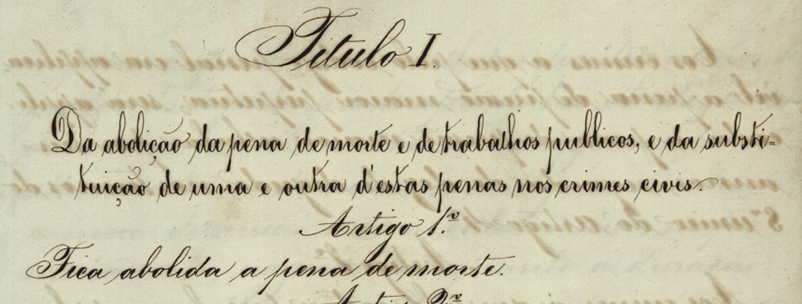 Titulo I.
Da abolição da pena de morte e de trabalhos publicos, e da substi-
tuição de uma e outra d'estas penas nos crimes civis.
Artigo 1.º
Fica abolida a pena de morte.